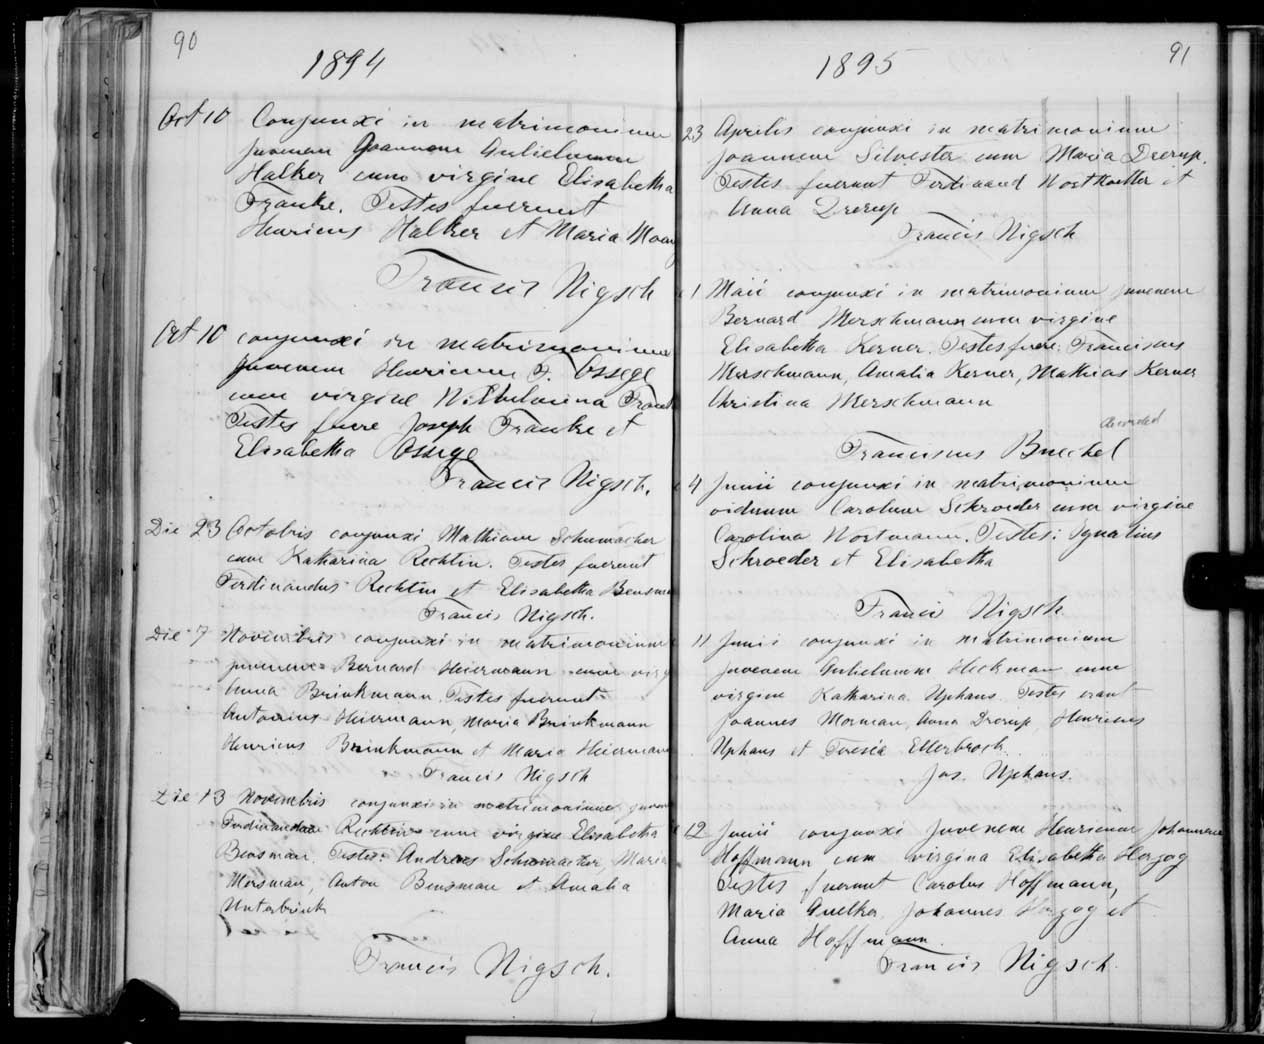 90
1894
Oct 10 Conjunxi in matrimonium
juvenem Joannem Gulielmum
Halker cum virgine Elisabetha
Franke. Testes fuerunt
Henricus Halker et Maria
Francis Nigsch
Oct 10 conjunxi in matrimonium
juvenem Henricum J. Ossege
cum virgine Wilhelmina
Testes fuere Joseph Franke et
Elisabetha Ossege
Francis Nigsch.
Die 23 Octobris conjunxi Mathiam Schumacher
cum Katharina Rechtin. Testes fuerunt
Ferdinandus Rechtin et Elisabetha
Francis Nigsch.
Die 7 Novembris conjunxi in matrimonium
juvenem Bernard Heiermann cum
Anna Brinkmann. Testes fuerunt
Antonius Heiermann, Maria Brinkmann
Henricus Brinkmann et Maria Heiermann
Francis Nigsch
Die 13 Novembris conjunxi in matrimonium
Rechtin cum virgine Elisabetha
Bensman. Testes: Andreas Schumacher, Maria
Mersman, Anton Bensman et Amalia
Unterbrink
Francis Nigsch.
91
1895
23 Aprilis conjunxi in matrimonium
Joannem Silvester cum Maria Drerup.
Testes fuerunt Ferdinand et
Anna Drerup
Francis Nigsch
1 Maii conjunxi in matrimonium juvenem
Bernard Merschmann cum virgine
Elisabetha Kerner. Testes fuere: Franciscus
Merschmann, Amalia Kerner, Mathias Kerner
Christina Merschmann
Franciscus Buechel
4 Junii conjunxi in matrimonium
viduum Carolum Schroeder cum virgine
Carolina Wortmann. Testes: Ignatius
Schroeder et Elisabetha
Francis Nigsch
11 Junii conjunxi in matrimonium
juvenem Gulielmum Heckman cum
virgine Katharina Uphaus. Testes erant
Joannes Morman, Anna Drerup, Henricus
Uphaus et Tresia Ellerbrock.
Jos. Uphaus.
12 Junii conjunxi juvenem Henricum Johannem
Hoffmann cum virgina Elisabetha Herzog
Testes fuerunt Carolus Hoffmann,
Maria Johannes Herzog et
Anna Hoffmann.
Francis Nigsch.